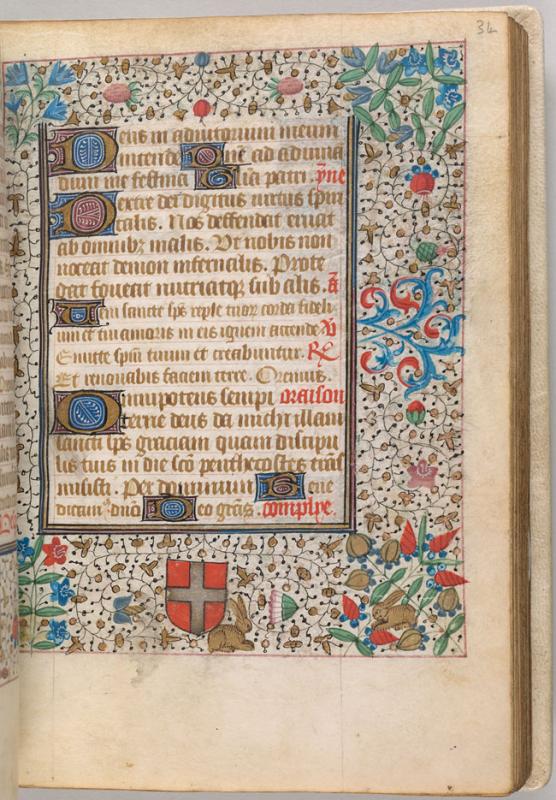 34
Deus in adiutorium meum
intende Dñe ad adiuua
dum me festina Glīa patri . ỹne
Dextre dei digitus virtus spiri
talis . Nos deffendat eruat
ab omnibꝫ malis . Vt nobis non
noceat demon infernalis . Prote
gat foueat nutriatqꝫ sub alis . ā
Veni sancte sp̄s reple tuoꝝ corda fideli
um et tui amoris in eis ignem accende
Emitte spm̄ tuum et creabuntur .
Et renouabis faciem terre . Oremus .
Omnipotens sempi oraison
terne deus da michi illam
sancti sp̄s graciam quam discipu
lis tuis in die scō penthecostes
misisti . Per dominum Bene
dicam dnō Deo grās . complxe .